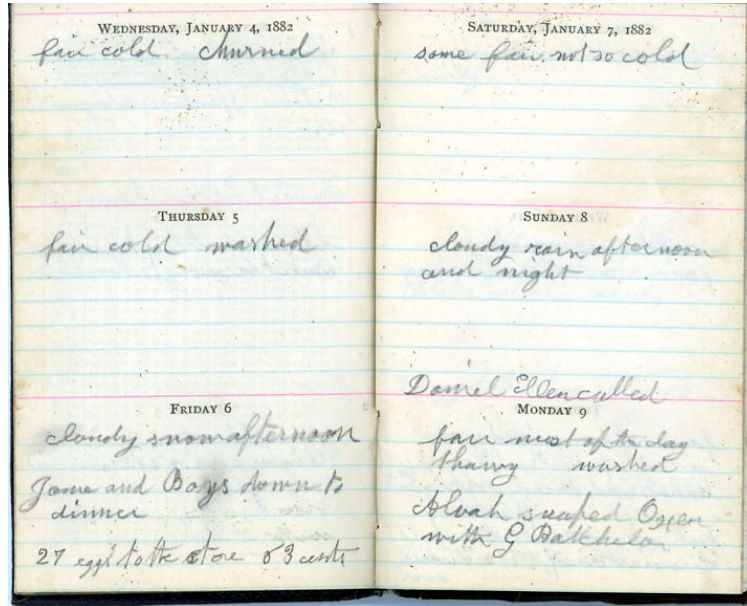 WEDNESDAY, JANUARY 4, 1882
fair cold churned
THURSDAY 5
fair cold washed
FRIDAY 6
cloudy snow afternoon
Jame and Boys down to
dinner
27 eggs to the store 63 cents
SATURDAY, JANUARY 7, 1882
some fair not so cold
SUNDAY 8
cloudy rain afternoon
and night
Daniel Ellen called
MONDAY 9
fair most of the day
thawy washed
Alvah swaped Oxen
with G Batchelor